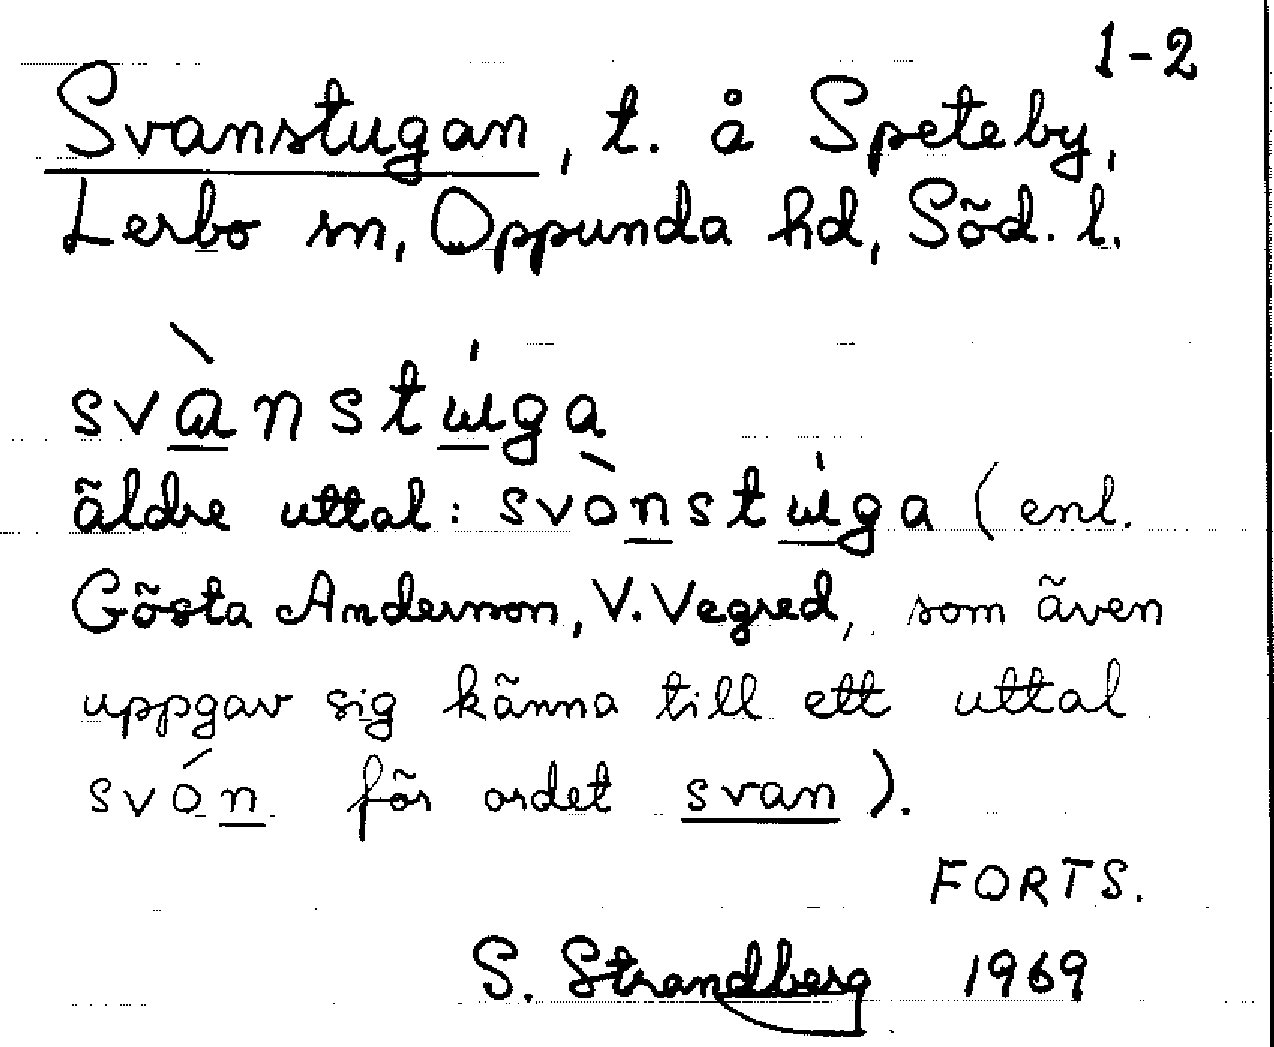 1-2
Svanstugan, t. å Speteby,
Lerbo sn, Oppunda hd, Söd. l.
svànstúga
äldre uttal: svònstúga (enl.
Gösta Andersson, V. Vegred, som även
uppgav sig känna till ett uttal
svón för ordet svan).
FORTS.
S. Strandberg 1969